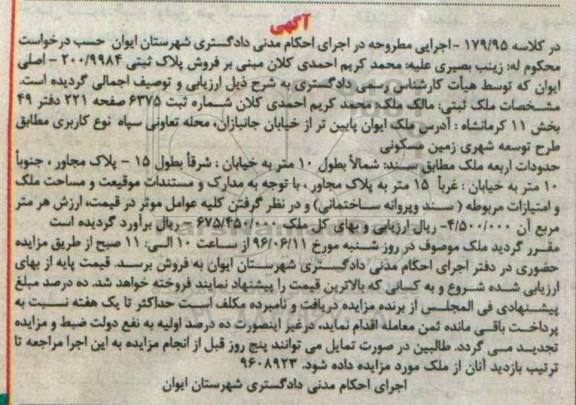 آگهی
در کلاسه ۱۷۹/۹۵ - اجرایی مطروحه در اجرای احکام مدنی دادگستری شهرستان ایوان حسب درخواست
محکوم له: زینب بصیری علیه: محمد کریم احمدی کلان مبنی بر فروش پلاک ثبتی ۲۰۰/۹۹۸۴ - اصلی
ایوان که توسط هیأت کارشناس رسمی دادگستری به شرح ذیل ارزیابی و توصیف اجمالی گردیده است.
مشخصات ملک ثبتی: مالک ملک: محمد کریم احمدی کلان شماره ثبت ۶۳۷۵ صفحه ۲۲۱ دفتر ۴۹
بخش ۱۱ کرمانشاه : آدرس ملک ایوان پایین تر از خیابان جانبازان، محله تعاونی سپاه نوع کاربری مطابق
طرح توسعه شهری زمین مسکونی
حدودات اربعه ملک مطابق سند: شمالاً بطول ۱۰ متر به خیابان : شرقاً بطول ۱۵ - پلاک مجاور ، جنوباً
۱۰ متر به خیابان : غرباً ۱۵ متر به پلاک مجاور ، با توجه به مدارک و مستندات موقیعت و مساحت ملک
و امتیازات مربوطه ( سند وپروانه ساختمانی) و در نظر گرفتن کلیه عوامل موثر در قیمت، ارزش هر متر
مربع آن ۴/۵۰۰/۰۰۰- ریال ارزیابی و بهای کل ملک ۶۷۵/۴۵۰/۰۰۰ - ریال برآورد گردیده است
مقرر گردید ملک موصوف در روز شنبه مورخ ۹۶/۰۶/۱۱ از ساعت ۱۰ الی: ۱۱ صبح از طریق مزایده
حضوری در دفتر اجرای احکام مدنی دادگستری شهرستان ایوان به فروش برسد. قیمت پایه از بهای
ارزیابی شده شروع و به کسانی که بالاترین قیمت را پیشنهاد نمایند فروخته خواهد شد. ده درصد مبلغ
پیشنهادی فی المجلس از برنده مزایده دریافت و نامبرده مکلف است حداکثر تا یک هفته نسبت به
پرداخت باقی مانده ثمن معامله اقدام نماید، درغیر اینصورت ده درصد اولیه به نفع دولت ضبط و مزایده
تجدید می گردد. طالبین در صورت تمایل می توانند پنج روز قبل از انجام مزایده به این اجرا مراجعه تا
ترتیب بازدید آنان از ملک مورد مزایده داده شود. ۹۶۰۸۹۲۳
اجرای احکام مدنی دادگستری شهرستان ایوان